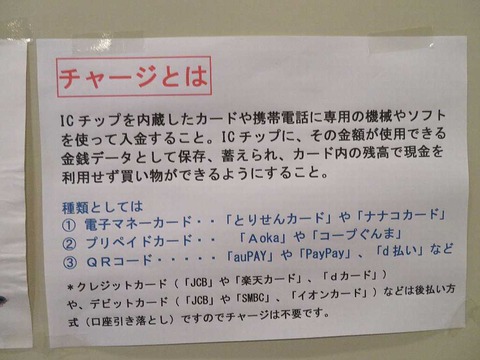 チャージとは
ICチップを内蔵したカードや携帯電話に専用の機械やソフト
を使って入金すること。ICチップに、その金額が使用できる
金銭データとして保存、蓄えられ、カード内の残高で現金を
利用せず買い物ができるようにすること。
種類としては
① 電子マネーカード・・「とりせんカード」や「ナナコカード」
② プリペイドカード・・ 「Aoka」や「コープぐんま」
③ QRコード・・・・・「auPAY」や「PayPay」、「d払い」など
＊クレジットカード（「JCB」や「楽天カード」、「dカード」）
や、デビットカード（「JCB」や「SMBC」、「イオンカード」）などは後払い方
式（口座引き落とし）ですのでチャージは不要です。